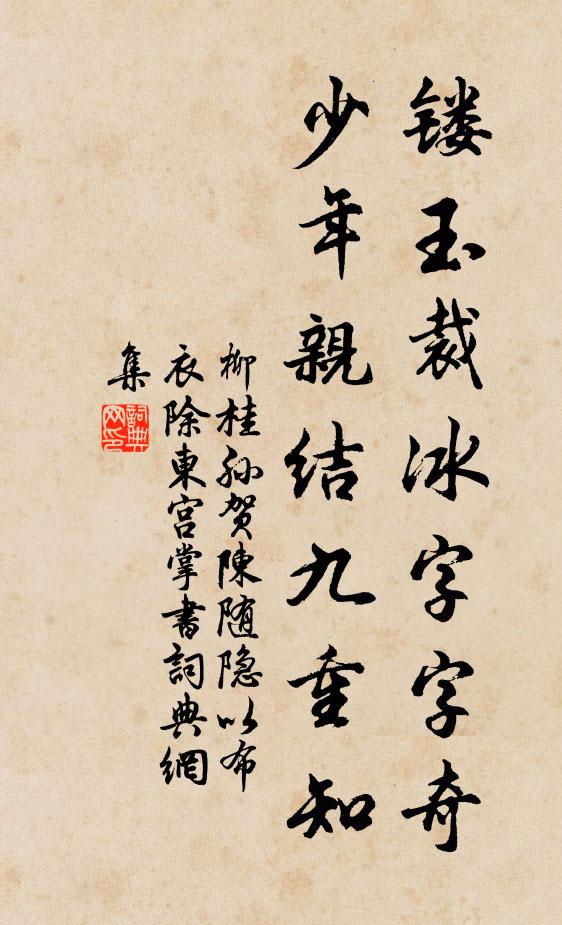 镂玉裁冰字字奇
少年親结九重知
柳桂孙贺陳随隐以布
衣除東宫掌書詞典網
集
詞典网印